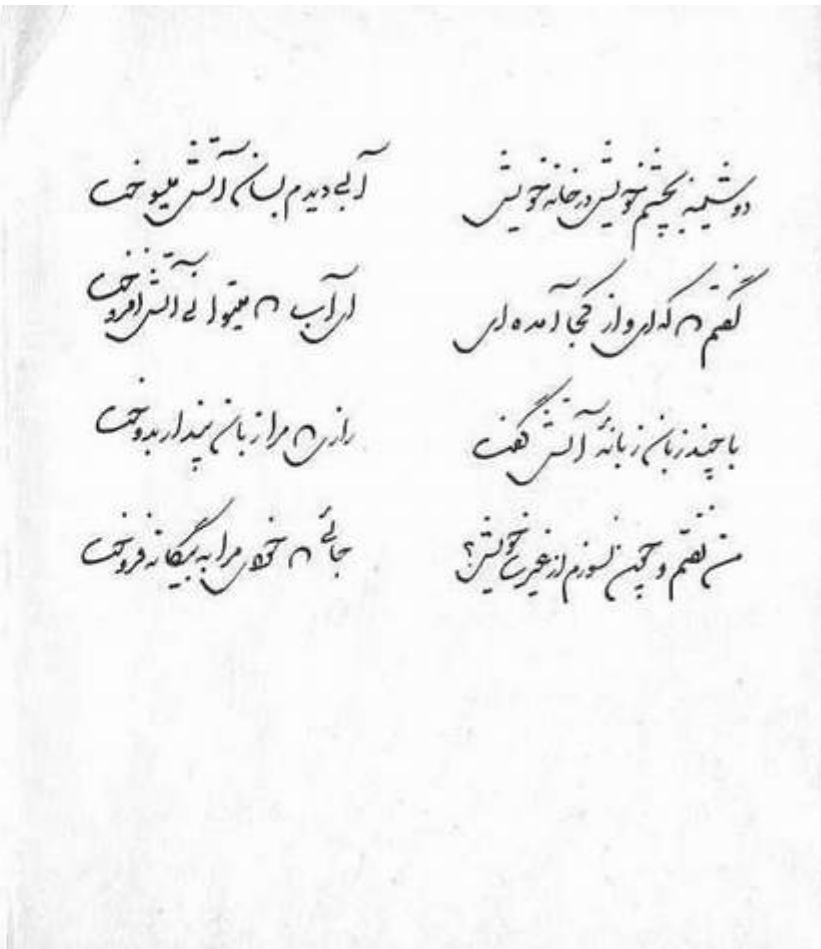 دوشینه بچشم خویش در خانه خویش آبی دیدم بسان آتش میسوخت
گفتم که ای و از کجا آمده‌ای ای آب که میتوانی آتش افروخت
با چند زبان زبانهٔ آتش گفت رازی که مرا زبان پندار بدوخت
من نفتم و چون نسوزم از غیرت خویش؟ جائی که خودی مرا به بیگانه فروخت